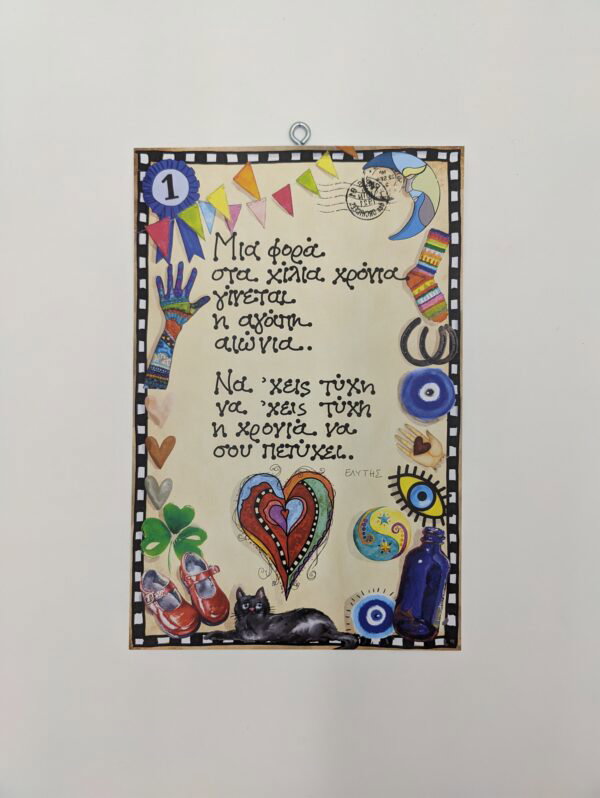 1
Μια φορά
στα χίλια χρόνια
γίνεται
η αγάπη
αιώνια..
Να 'χεις τύχη
να 'χεις τύχη
η χρονιά να
σου πετύχει..
ΕΛΥΤΗΣ